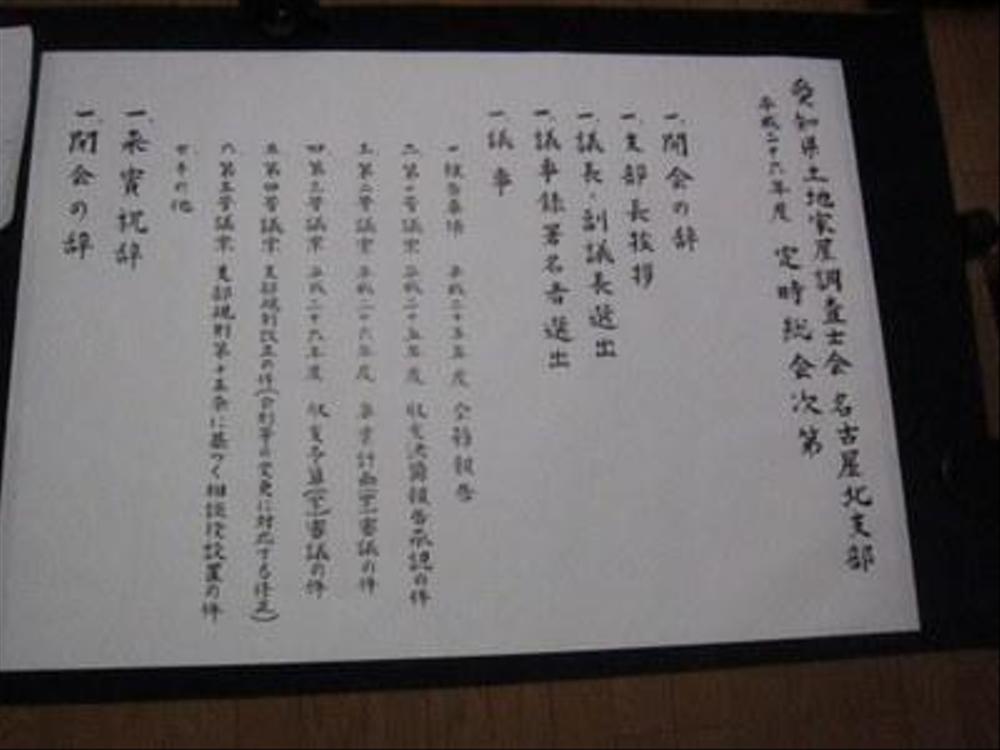 愛知県土地家屋調査士会 名古屋北支部
平成二十六年度 定時総会次第
一、開会の辞
一、支部長挨拶
一、議長・副議長選出
一、議事録署名者選出
一、議事
一 報告事項 平成二十五年度 会務報告
二 第一号議案 平成二十五年度 収支決算報告承認の件
三 第二号議案 平成二十六年度 事業計画(案)審議の件
四 第三号議案 平成二十六年度 収支予算(案)審議の件
五 第四号議案 支部規則改正の件(会則等の変更に対応する修正)
六 第五号議案 支部規則第十五条に基づく相談役設置の件
七 その他
一、来賓祝辞
一、閉会の辞